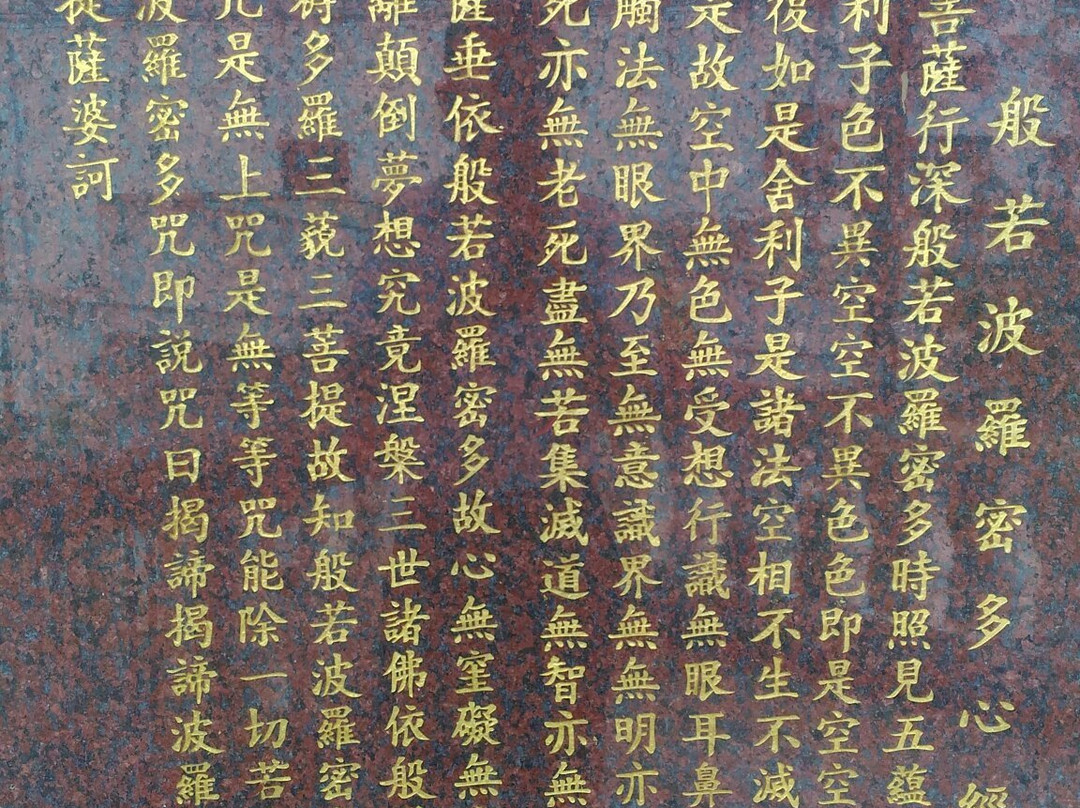 般若波羅密多心經
菩薩行深般若波羅密多時照見五蘊
利子色不異空空不異色色即是空空
復如是舍利子是諸法空相不生不滅
是故空中無色無受想行識無眼耳鼻
觸法無眼界乃至無意識界無無明亦
死亦無老死盡無苦集滅道無智亦無
薩垂依般若波羅密多故心無罣礙無
離顛倒夢想究竟涅槃三世諸佛依般
得多羅三藐三菩提故知般若波羅密
咒是無上咒是無等等咒能除一切苦
波羅密多咒即說咒曰揭諦揭諦波羅
提薩婆訶